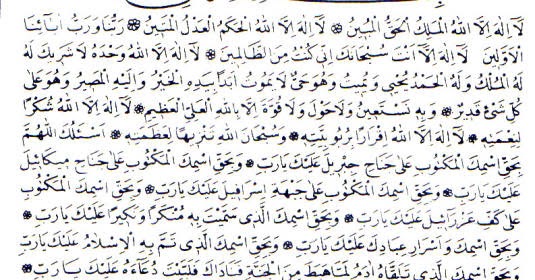 لَآ اِلٰهَ اِلَّا اللهُ الْمَلِكُ الْحَقُّ الْمُبٖينُ ۞ لَآ اِلٰهَ اِلَّا اللهُ الْحَكَمُ الْعَدْلُ الْمَتٖينُ ۞ رَبُّنَا وَرَبُّ اٰبَآئِنَا
الْاَوَّلٖينَ لَآ اِلٰهَ اِلَّآ اَنْتَ سُبْحَانَكَ اِنّٖى كُنْتُ مِنَ الظَّالِمٖينَ ۞ لَآ اِلٰهَ اِلَّا اللهُ وَحْدَهُ لَا شَرٖيكَ لَهُ
لَهُ الْمُلْكُ وَلَهُ الْحَمْدُ يُحْيٖى وَيُمٖيتُ وَهُوَ حَىٌّ لَا يَمُوتُ اَبَدًا بِيَدِهِ الْخَيْرُ وَاِلَيْهِ الْمَصٖيرُ وَهُوَ عَلٰى
كُلِّ شَىْءٍ قَدٖيرٌ ۞ وَبِهٖ نَسْتَعٖينُ وَلَا حَوْلَ وَلَا قُوَّةَ اِلَّا بِاللهِ الْعَلِىِّ الْعَظٖيمِ ۞ لَآ اِلٰهَ اِلَّا اللهُ شُكْرًا
لِنِعْمَتِهٖ ۞ لَآ اِلٰهَ اِلَّا اللهُ اِقْرَارًا بِرُبُوبِيَّتِهٖ ۞ وَسُبْحَانَ اللهِ تَنْزٖيهًا لِعَظَمَتِهٖ ۞ اَسْئَلُكَ اللّٰهُمَّ
بِحَقِّ اسْمِكَ الْمَكْتُوبِ عَلٰى جَنَاحِ جِبْرٖيلَ عَلَيْكَ يَارَبِّ ۞ وَبِحَقِّ اسْمِكَ الْمَكْتُوبِ عَلٰى جَنَاحِ مٖيكَائٖيلَ
عَلَيْكَ يَارَبِّ ۞ وَبِحَقِّ اسْمِكَ الْمَكْتُوبِ عَلٰى جَبْهَةِ اِسْرَافٖيلَ عَلَيْكَ يَارَبِّ ۞ وَبِحَقِّ اسْمِكَ الْمَكْتُوبِ
عَلٰى كَفِّ عَزْرَائٖيلَ عَلَيْكَ يَارَبِّ ۞ وَبِحَقِّ اسْمِكَ الَّذٖى سَمَّيْتَ بِهٖ مُنْكَرًا وَنَكٖيرًا عَلَيْكَ يَارَبِّ ۞
وَبِحَقِّ اسْمِكَ وَاَسْرَارِ عِبَادِكَ عَلَيْكَ يَارَبِّ ۞ وَبِحَقِّ اسْمِكَ الَّذٖى تَمَّ بِهِ الْاِسْلَامُ عَلَيْكَ يَارَبِّ
وَبِحَقِّ اسْمِكَ الَّذٖى تَلَقَّاهُ اٰدَمُ لَمَّا هَبَطَ مِنَ الْجَنَّةِ فَنَادَاكَ فَلَبَّيْتَ دُعَآءَهُ عَلَيْكَ يَارَبِّ ۞